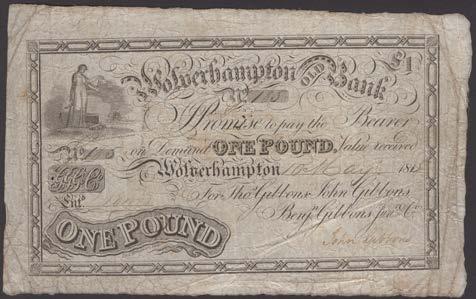 Wolverhampton OLD Bank £1
No
I Promise to pay the Bearer
No on Demand ONE POUND, Value received
Wolverhampton 10 May 181
For Thos. Gibbons, John Gibbons,
Ent.d Benjn. Gibbons Junr. & Co.
ONE POUND
John Gibbons